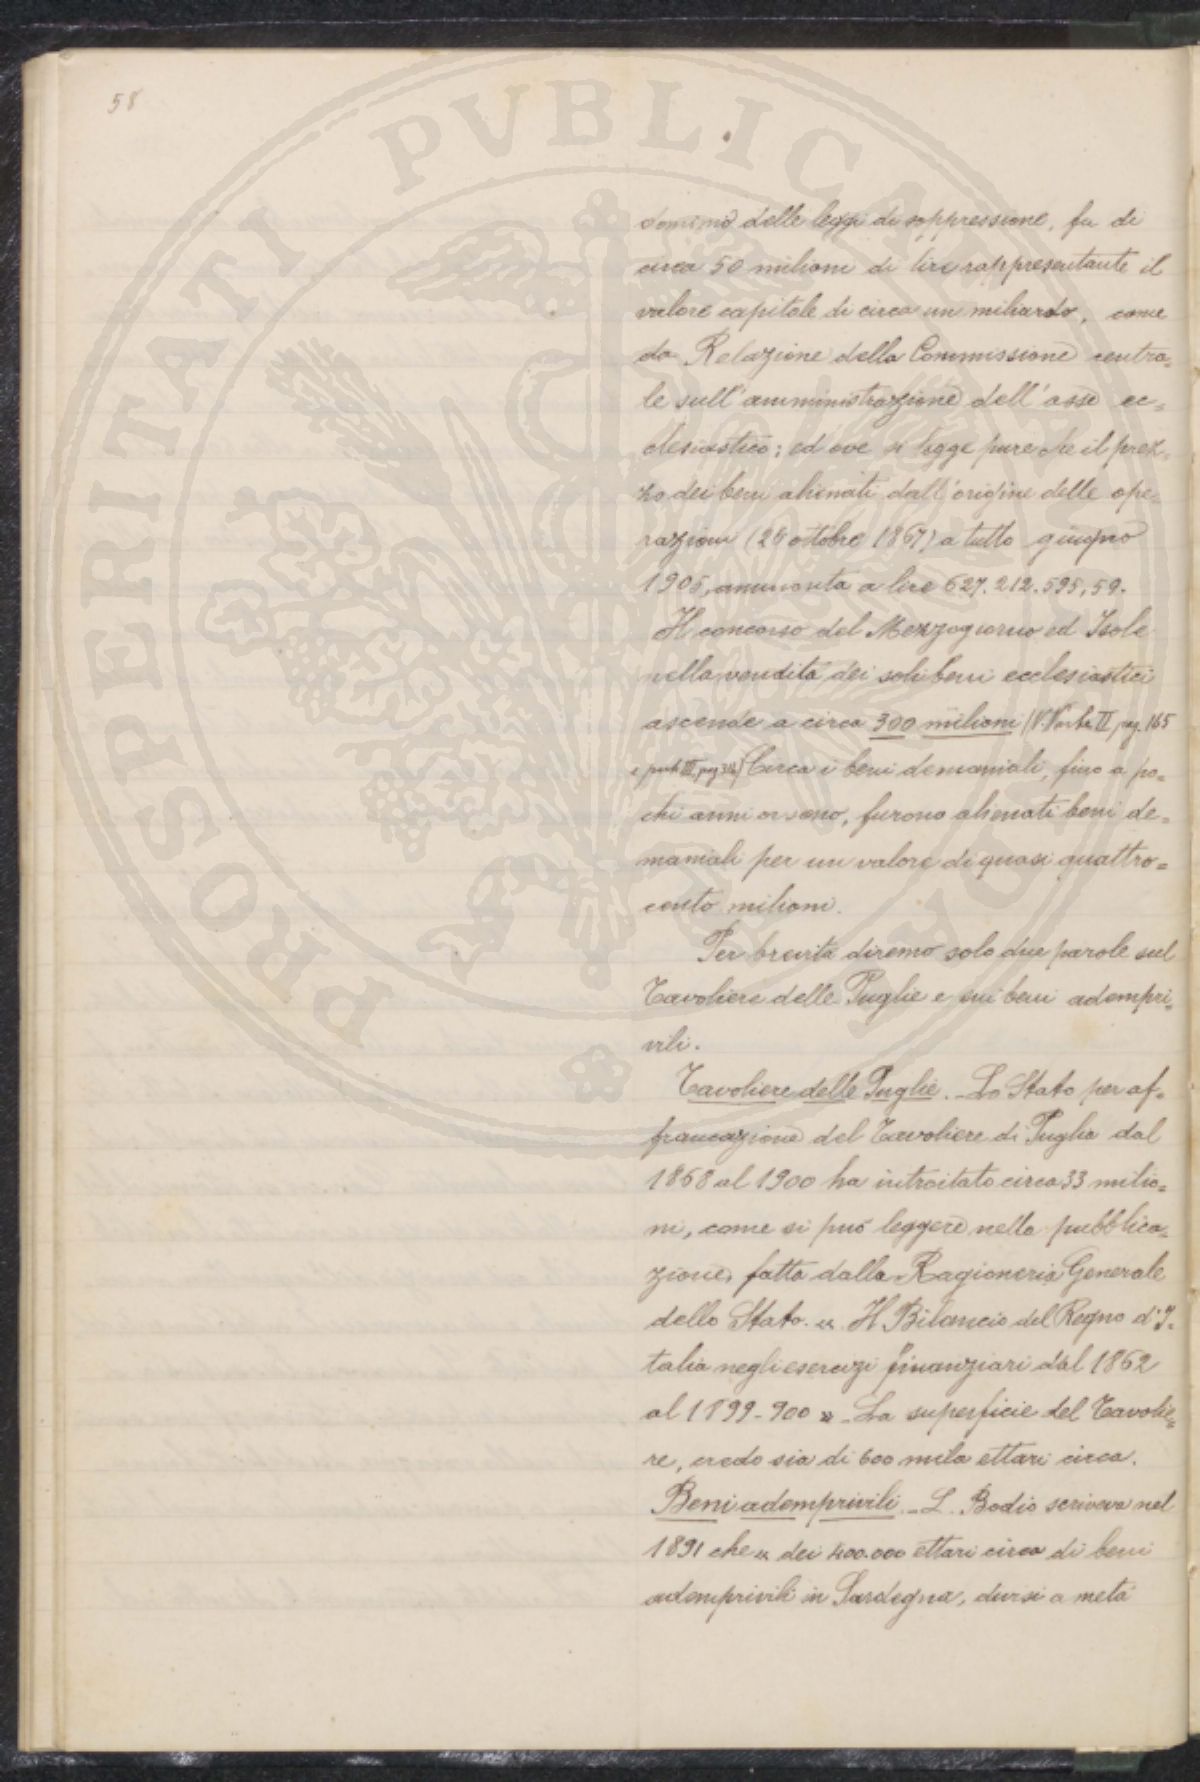 58
PROSPERITATI PVBLICAE
dominio delle leggi di soppressione, fu di
circa 50 milioni di lire rappresentante il
valore capitale di circa un miliardo, come
da Relazione della Commissione centra=
le sull'amministrazione dell'asse ec=
clesiastico; ed ove si legge pure che il prez=
zo dei beni alienati dall'origine delle ope=
razioni (26 ottobre 1867) a tutto giugno
1905, ammonta a lire 627.212.595,59.
Il concorso del Mezzogiorno ed Isole
nella vendita dei soli beni ecclesiastici
ascende a circa 300 milioni (V. Parte II pag. 165
e parte III, pag. ) Circa i beni demaniali, fino a po=
chi anni or sono, furono alienati beni de=
maniali per un valore di quasi quattro=
cento milioni.
Per brevità diremo solo due parole sul
Tavoliere delle Puglie e sui beni adempri=
vili.
Tavoliere delle Puglie. - Lo Stato per af=
francazione del Tavoliere di Puglia dal
1868 al 1900 ha introitato circa 33 milio=
ni, come si può leggere nella pubblica=
zione, fatta dalla Ragioneria Generale
dello Stato. « Il Bilancio del Regno d'I=
talia negli esercizi finanziari dal 1862
al 1899-900 » - La superficie del Tavolie=
re, credo sia di 600 mila ettari circa.
Beni ademprivili. - L. Bodio scriveva nel
1891 che « dei 400.000 ettari circa di beni
ademprivili in Sardegna, dursi a metà